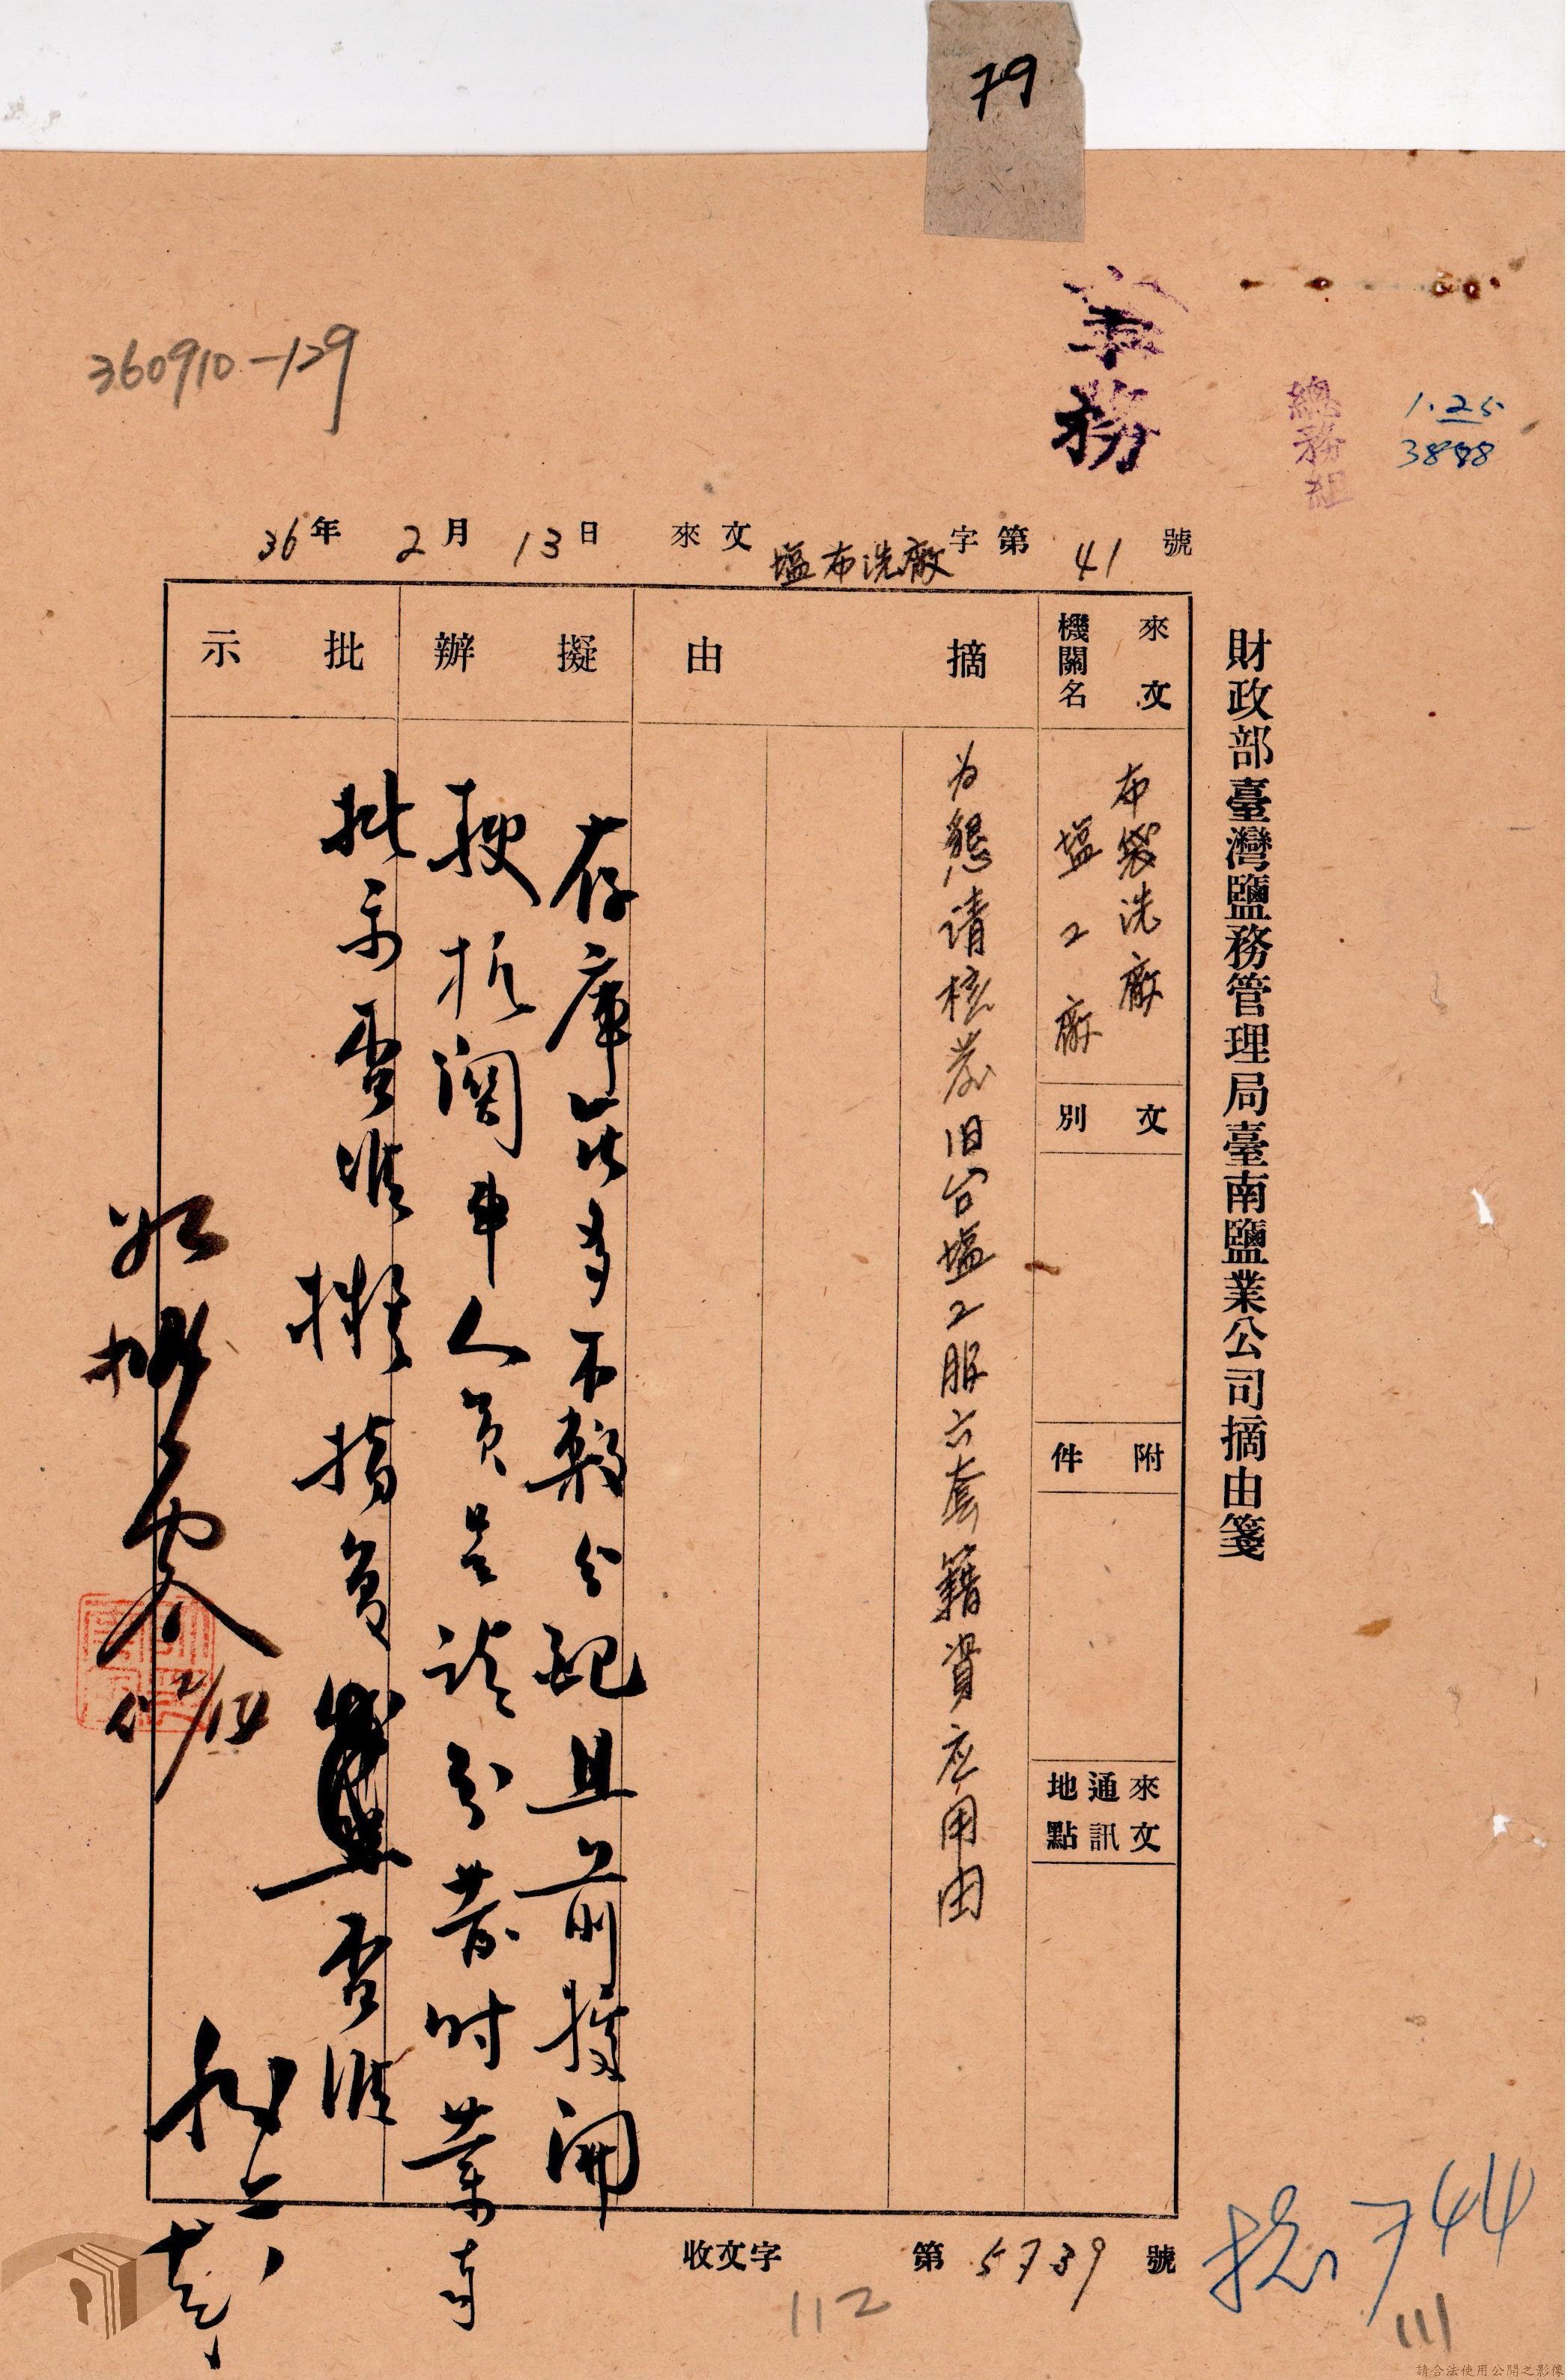 79
360910-129
業務
總務組
1.25
3888
36年2月13日 來文 塩布洗廠字第41號
財政部臺灣鹽務管理局臺南鹽業公司摘由箋
來文機關名
布袋洗廠
塩工廠
文別
附件
來文通訊地點
摘由
为懇請核發旧台塩工服六套籍資应用由
擬辦
存庫無多不敷分配且前據
人員呈請分發時業奉
批示
批示否准擬指復
否准
如擬
2/14
收文字第5739號
744
112
111
請合法使用公開之影像